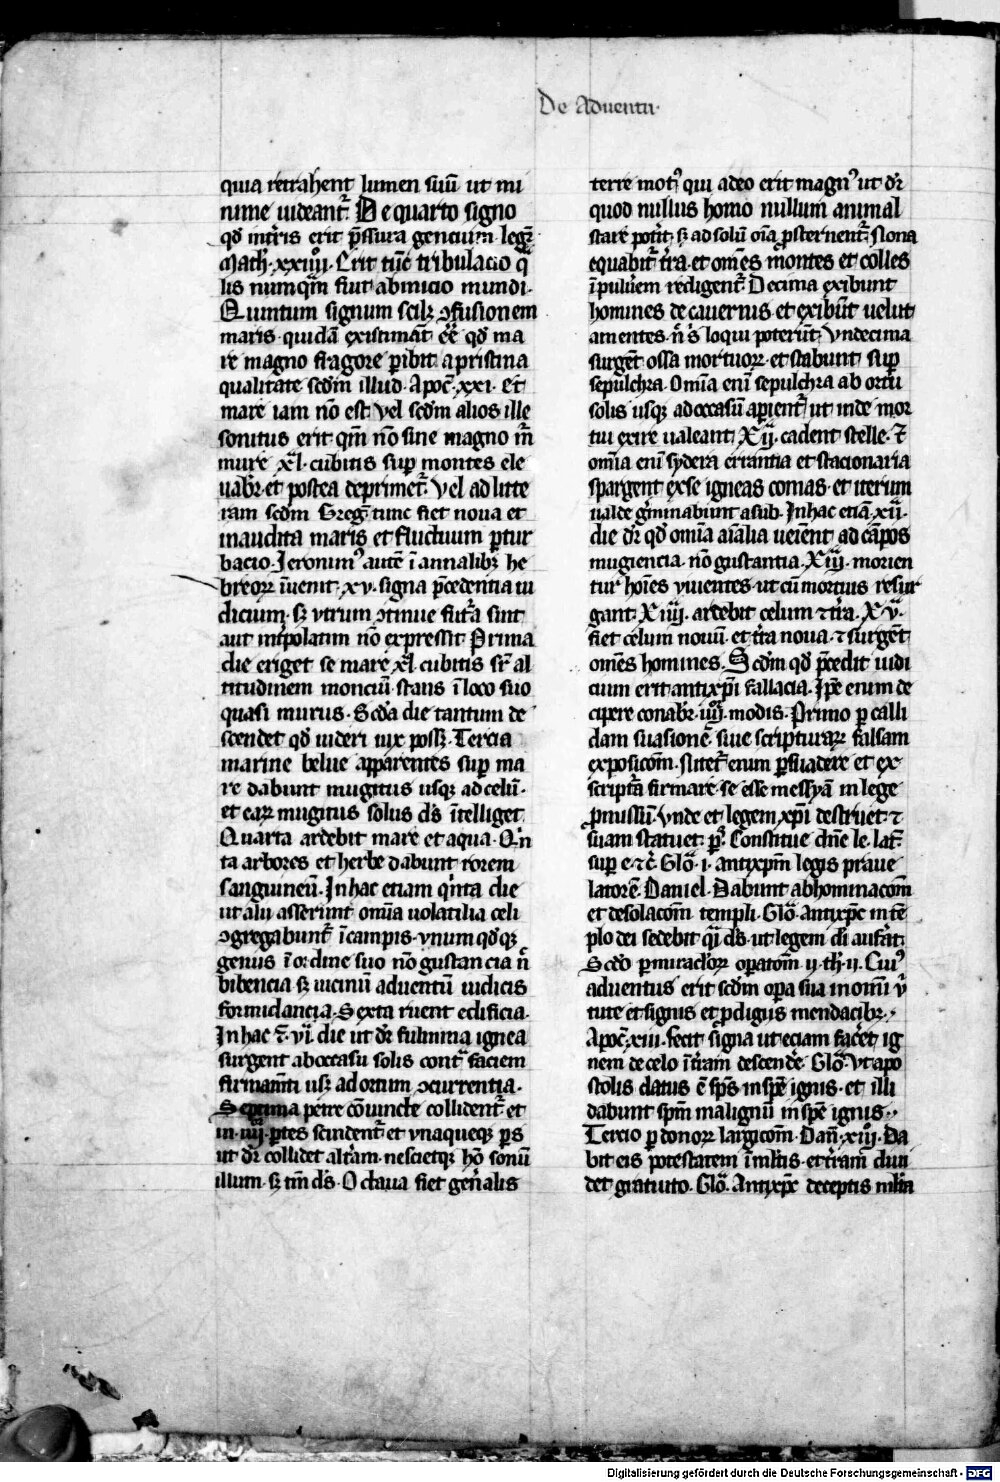 De Aduentu
quia retrahent lumen suū ut mi
nime uideant᷑. De quarto signo
qd̄ int̄ris erit p̄ssura gencium legr̄
Math̄. xxiiij. Erit tūc tribulacio q̄
lis numqm̄ fiut ab inicio mundi.
Quintum signum scilꝫ ꝯfusionem
maris. quidā existimāt eē̄ qd̄ ma
re magno fragore ꝑibit a pristina
qualitate scd̄m illud. Apoc̄. xxi. et
mare iam nō est. Vel scd̄m alios ille
sonitus erit qm̄ nō sine magno m̄
mure xl. cubitis suꝑ montes ele
uabr̄. et postea deprimet᷑. Vel ad litte
ram scd̄m Greg̅ tunc fiet noua et
inaudita maris et fluctuum ꝑtur
bacio. Jeronimꝰ autē ī annalibꝫ he
breorꝝ īuenit. xv. signa p̄cedentia iu
dicium. sꝫ vtrum ꝯtinue fut᷑a sint
aut int̄polatim nō expressit. Prima
die eriget se mare xl. cubitis sr̄ al
titudinem monciū. stans ī loco suo
quasi murus. Scd̄a die tantum de
scendet qd̄ uideri uix possꝫ. Tercia
marine belue apparentes suꝑ ma
re dabunt mugitus usqꝫ ad celū.
et earꝝ mugitus solus ds̄ ītelliget
Quarta ardebit mare et aqua. Qn̄
ta arbores et herbe dabunt rorem
sanguineū. In hac etiam qn̄ta die
ut alij asserunt om̄ia uolatilia celi
ꝯgregabunt᷑ ī campis. vnum qd̄qꝫ
genus ī ordine suo nō gustancia n̄
bibencia sꝫ uicinū aduentū iudicis
formidancia. Sexta ruent edificia.
In hac ⁊. vi. die ut dr̄ fulmina ignea
surgent ab occasu solis cont᷑ faciem
firmam̄ti usqꝫ ad ortum ꝯcurrentia.
Septima petre cōuincte collident᷑ et
in. iiij. ꝑtes scindent᷑ et vnaqueqꝫ ꝑs
ut dr̄ collidet alt̄am. nescietqꝫ hō sonū
illum. sꝫ tm̄ ds̄. Octaua fiet gen̄alis
terre motꝰ qui adeo erit magnꝰ ut dr̄
quod nullus homo nullum animal
stare potit̄. sꝫ ad solū oīa ꝓsternent᷑. Nona
equabit᷑ t̄ra. et om̄es montes et colles
ī puluērem redigent᷑. Decima exibunt
homines de cauernis. et exibūt uelut
amentes. n̄ s̄ loqui poterūt. Vndecima
surgēt ossa mortuorꝝ. et stabunt suꝑ
sepulchra. Om̄ia enī sepulchra ab ortu
solis usqꝫ ad occasū aꝑient᷑ ut inde mor
tui exire ualeant. Xij. cadent stelle. ⁊
om̄ia enī sydera errantia et stacionaria
spargent ex se igneas comas. et iterum
ualde gm̄inabiunt a sub. In hac etiā. xij.
die dr̄ qd̄ om̄ia aīalia ueīent ad cāpos
mugiencia. nō gustantia. Xiij. morien
tur hoīes viuentes. ut cū mortuis resur
gant. Xiiij. ardebit celum ⁊ t̄ra. Xv.
fiet celum nouū. et t̄ra noua. ⁊ surgēt
om̄es homines. Scd̄m qd̄ p̄cedit iudi
cium erit antixp̄i fallacia. Ip̄e enim de
cipere conabr̄. iiij. modis. Primo ꝑ calli
dam suasionē. siue scripturarꝝ falsam
exposicōm. Nitet᷑ enim ꝑsuadere et ex
scriptā firmare. se esse messyā in lege
ꝓmissū. vnde et legem xp̄i destruet. ⁊
suam statuet. pꝰ. Constitue dn̄e le. lat᷑.
suꝑ e. ⁊c̄. Glo᷑. i. antixpm̄ legis praue
latorē. Daniel. Dabunt abhominacōm
et desolacōm templi. Glo᷑. Antixp̄c in tē
plo dei sedebit q̄i ds̄. ut legem di aufāt.
Scd̄o ꝑ miraclorꝝ oꝑatōm. ij. th̄. ij. Cuiꝰ
aduentus erit scd̄m oꝑa sua in om̄i v̄
tute et signis et ꝓdigijs mendacibꝫ.
Apoc̄. xiii. fecit signa ut eciam fac̄et ig
nem de celo ī t̄ram descend̄e. Glo᷑. Vt apo
stolis datus ē sps̄ in spē ignis. et illi
dabunt spm̄ malignū in spē ignis.
Tercio ꝑ donorꝝ largicōm. Dan̄. xiij. Da
bit eis potestatem ī ml̄tis. et t̄ram diui
det gratuito. Glo᷑. Antixp̄c deceptis ml̄ta
Digitalisierung gefördert durch die Deutsche Forschungsgemeinschaft - DFG